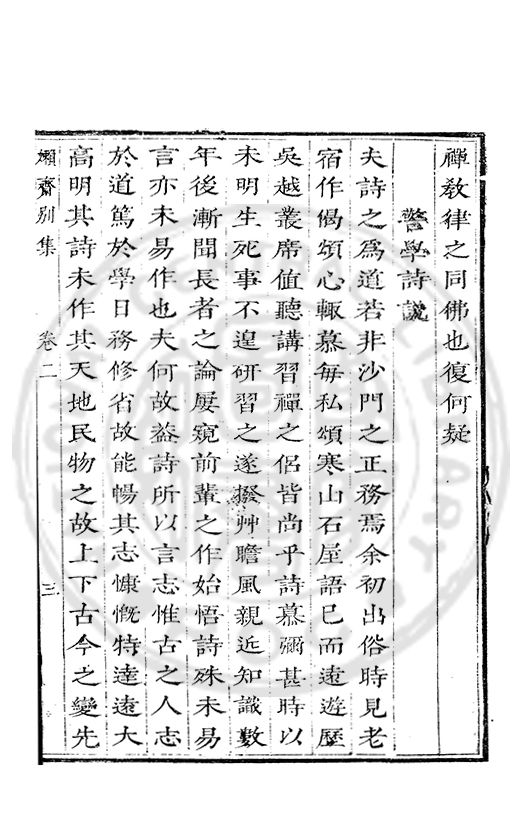 禪敎律之同佛也復何疑
警學詩說
夫詩之爲道若非沙門之正務焉余初出俗時見老
宿作偈頌心輙慕每私頌寒山石屋語已而遠遊歷
吳越叢席值聽講習禪之侶皆尚乎詩慕彌甚時以
未明生死事不遑研習之遂撥艸瞻風親近知識數
年後漸聞長者之論屢窺前輩之作始悟詩殊未易
言亦未易作也夫何故葢詩所以言志惟古之人志
於道篤於學日務修省故能暢其志慷慨特達遠大
高明其詩未作其天地民物之故上下古今之變先
嬾齋別集 卷二 三